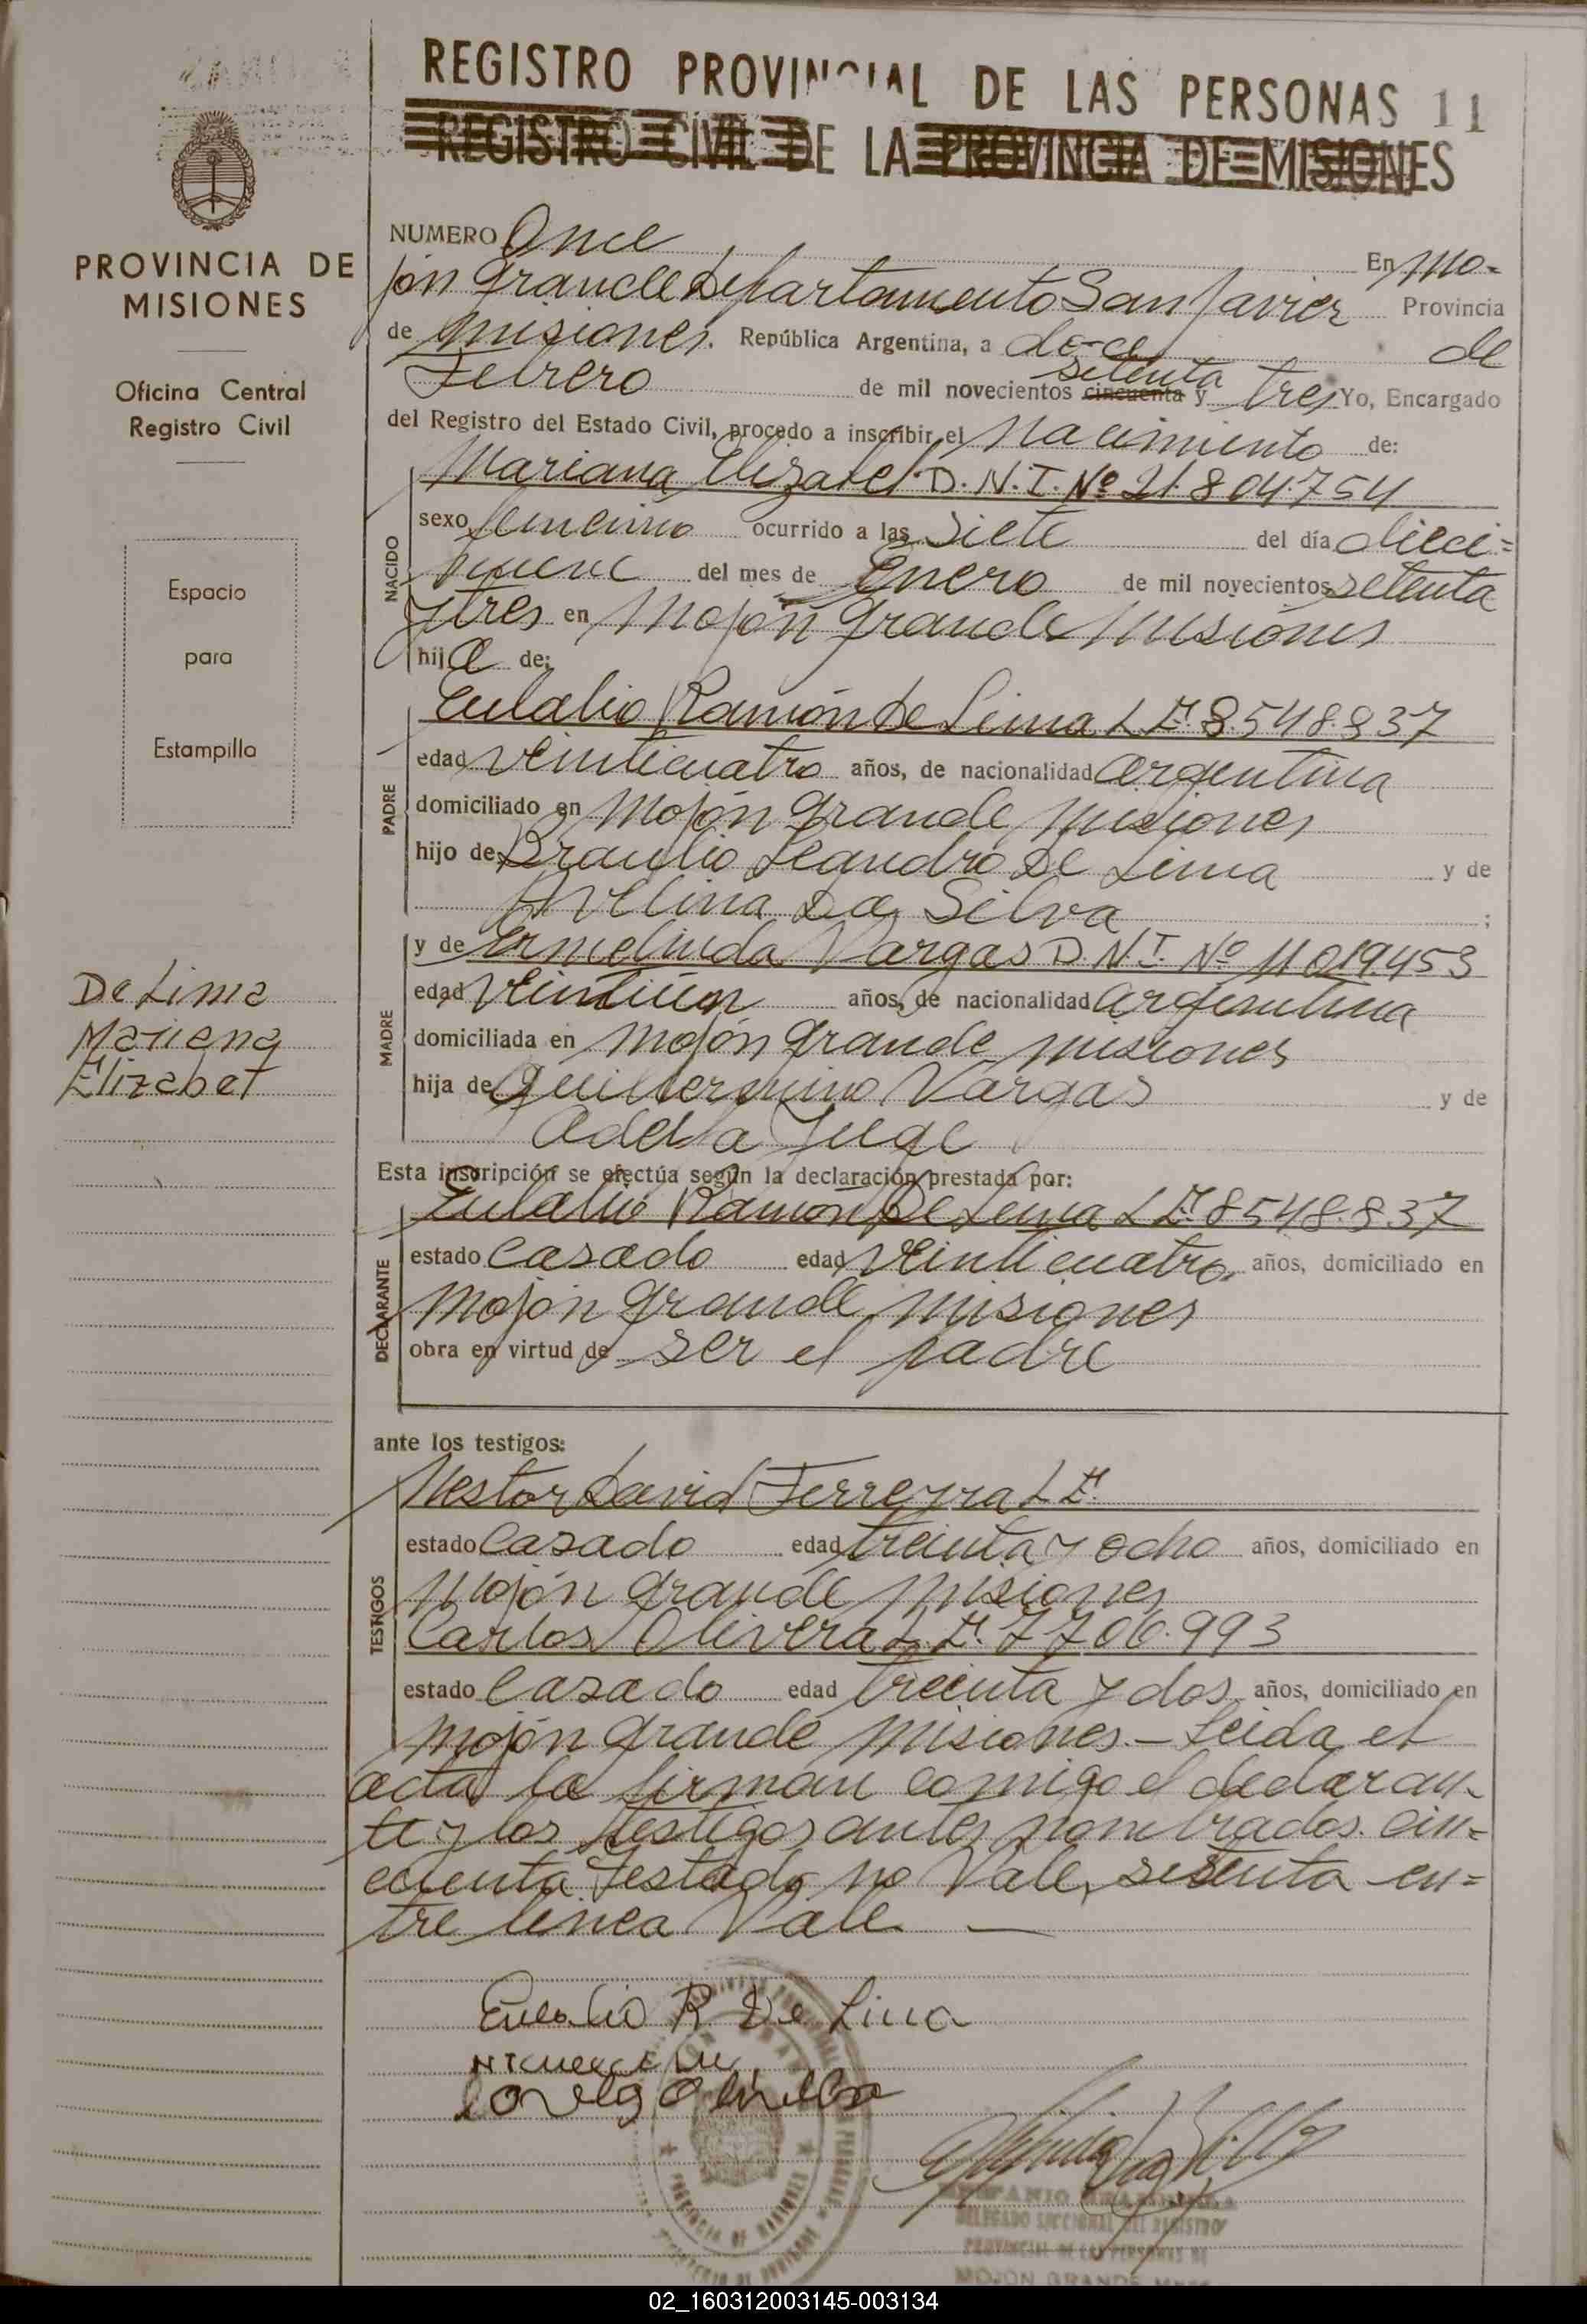 REGISTRO PROVINCIAL DE LAS PERSONAS 11
REGISTRO CIVIL DE LA PROVINCIA DE MISIONES
PROVINCIA DE
MISIONES
Oficina Central
Registro Civil
Espacio
para
Estampilla
De Lima
Mariana
Elizabet
NUMERO Once En Mo-
jón Grande Departamento San Javier Provincia
de Misiones. República Argentina, a doce de
Febrero de mil novecientos cincuenta setenta y tres Yo, Encargado
del Registro del Estado Civil, procedo a inscribir el Nacimiento de:
NACIDO
Mariana Elizabet D.N.I. Nº 21.804.754
sexo femenino ocurrido a las Siete del día dieci=
nueve del mes de Enero de mil novecientos setenta
y tres en Mojón Grande Misiones
hija de:
PADRE
Eulalio Ramón De Lima L.E. 8548.837
edad veinticuatro años, de nacionalidad argentina
domiciliado en Mojón Grande Misiones
hijo de Braulio Leandro De Lima y de
Avelina Da Silva ;
MADRE
y de Ermelinda Vargas D.N.I. Nº 11.019.453
edad veintiún años, de nacionalidad argentina
domiciliada en Mojón Grande Misiones
hija de Guillermino Vargas y de
Adela
Esta inscripción se efectúa según la declaración prestada por:
DECLARANTE
Eulalio Ramón De Lima L.E. 8548.837
estado casado edad veinticuatro, años, domiciliado en
Mojón Grande Misiones
obra en virtud de ser el padre
ante los testigos:
TESTIGOS
Nestor David Ferreyra L.E.
estado casado edad treinta y ocho años, domiciliado en
Mojón Grande Misiones
Carlos Olivera L.E. 7706.993
estado casado edad treinta y dos años, domiciliado en
Mojón Grande Misiones.- Leida el
acta la firman comigo el declaran-
te y los testigos antes nombrados. Cin=
cuenta testado no Vale, setenta en=
tre linea Vale. —
Eulalio R De Lima
DELEGADO SECCIONAL DEL REGISTRO
PROVINCIAL DE LAS PERSONAS DE
MOJON GRANDE
02_160312003145-003134